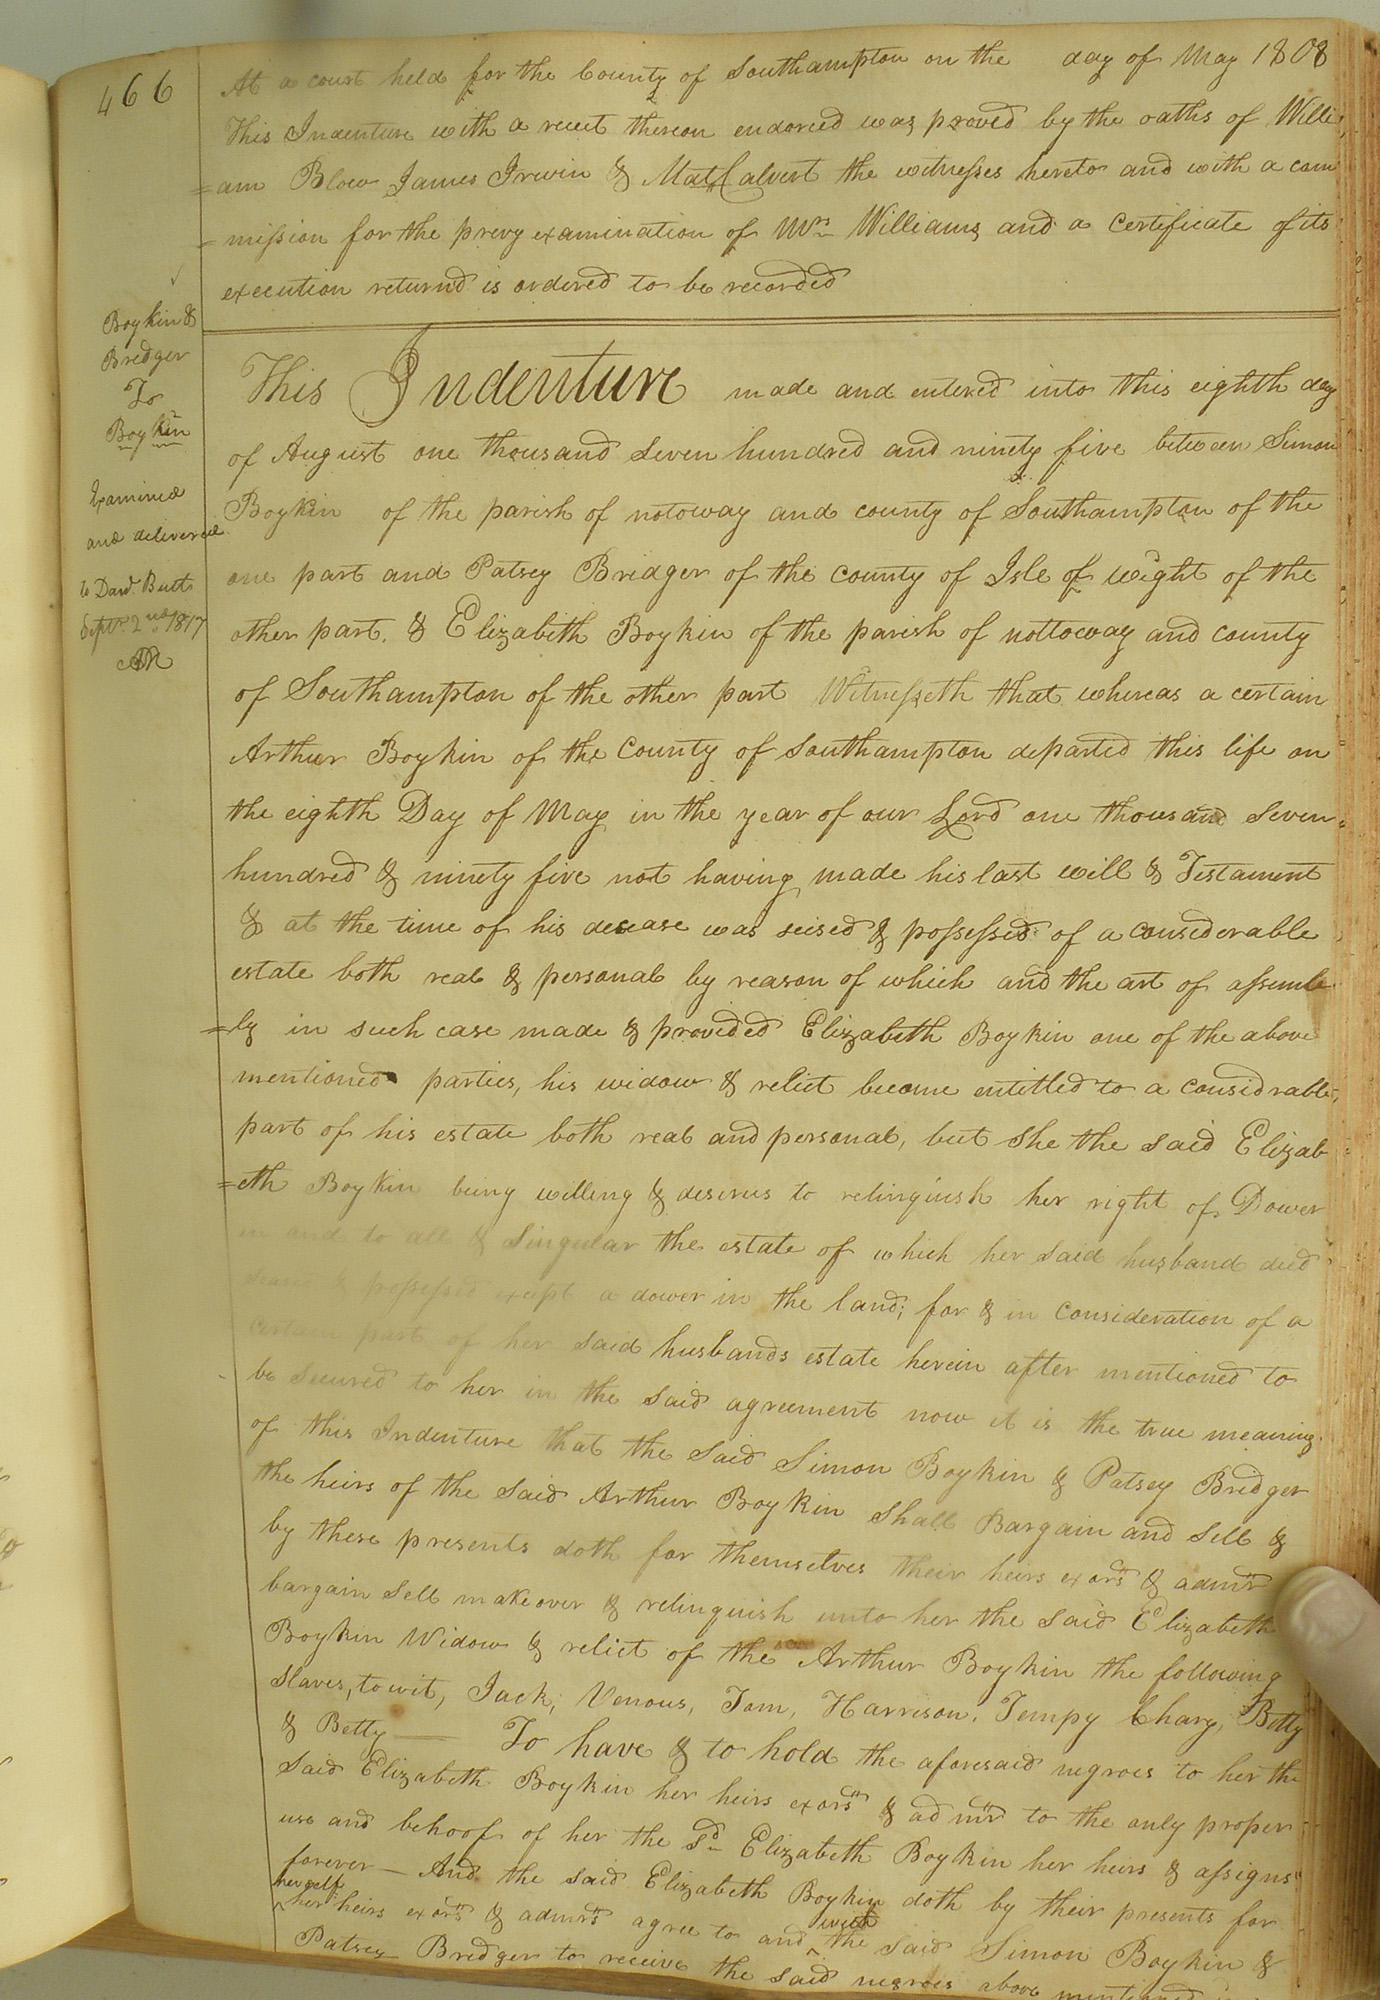 466
At a court held for the County of Southampton on the day of May 1808
This Indenture with a receit thereon endorced was proved by the oaths of Willi
=am Blow James Irwin & Mat. Calvert the witnesses hereto and with a com
=mission for the prevy examination of Mrs Williams and a certificate of its
execution returnd is ordered to be recorded
Boykin &
Bredger
To
Boykin
Examined
and delivered
to Davd. Butts
Septr. 2nd 1817
This Indenture made and entered into this eighth day
of August one thousand seven hundred and ninety five between Simon
Boykin of the parish of notoway and county of Southampton of the
one part and Patsey Bredger of the county of Isle of wight of the
other part. & Elizabeth Boykin of the parish of nottoway and county
of Southampton of the other part Witnesseth that whereas a certain
Arthur Boykin of the County of Southampton departed this life on
the eighth Day of May in the year of our Lord one thousand seven
hundred & ninety five not having made his last will & Testament
& at the time of his desease was seised & possessed of a considerable
estate both real & personal by reason of which and the art of assemb
=ly in such case made & provided Elizabeth Boykin one of the above
mentioned parties, his widow & relict become entitled to a considrable
part of his estate both real and personal, but she the said Elizab
=eth Boykin being willing & desirus to relinquish her right of Dower
in and to all & Singular the estate of which her said husband died
seased & possessed except a dower in the land; for & in consideration of a
certain part of her said husbands estate herein after mentioned to
be secured to her in the said agreement now it is the true meaning
of this Indenture that the said Simon Boykin & Patsey Bredger
the heirs of the said Arthur Boykin shall Bargain and sell &
by these presents doth for themselves their heirs exors & admrs
bargain sell make over & relinquish unto her the said Elizabeth
Boykin Widow & relict of the Arthur Boykin the following
slaves, to wit, Jack, Venous, Tom, Harrison, Tempy Chary, Betty
& Betty — To have & to hold the aforesaid negroes to her the
said Elizabeth Boykin her heirs exors & admrs to the only proper
use and behoof of her the sd Elizabeth Boykin her heirs & assigns
forever — And the said Elizabeth Boykin doth by their presents for
herself
her heirs exors & admrs agree to and with the said Simon Boykin &
Patsey Bredger to receive the said negroes above mentioned